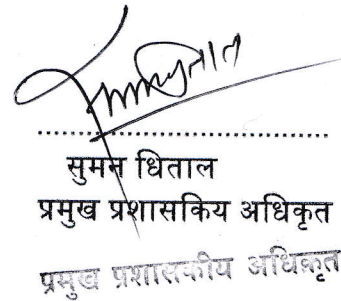 सुमन धिताल
प्रमुख प्रशासकिय अधिकृत
प्रमुख प्रशासकीय अधिकृत